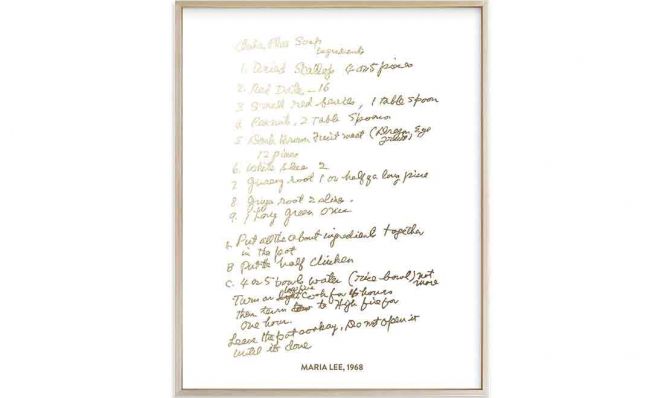 Soup
Ingredients
1. Dried Scallop 4 or 5 pieces
2. Red Date - 16
3. Small red berries, 1 table spoon
4. 2 Table Spoons
5. Dark brown fruit meat (Dragon Eye
12 pieces
6. White 2
7. root 1 or half a long piece
8. root 2 slices.
9. 1 long green
A. Put all the about ingredients together
in the pot
B Put half chicken
C. 4 or 5 bowls water (rice bowl) not
more
Turn on Cook for hours
then turn to High fire for
One hour.
Leave the pot Do not open it
until its done
MARIA LEE, 1968